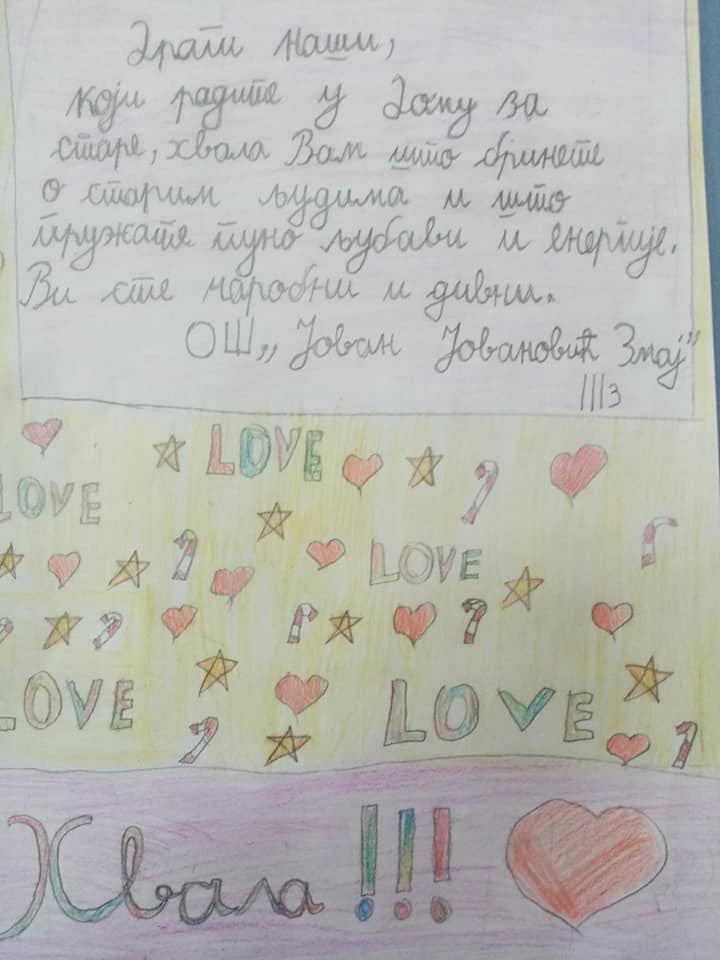 Драги наши,
који радите у Дому за
старе, хвала Вам што бринете
о старим људима и што
пружате пуно љубави и енергије.
Ви сте чаробни и дивни.
ОШ „Јован Јовановић Змај"
III3
LOVE
LOVE
LOVE
LOVE
LOVE
Хвала!!!